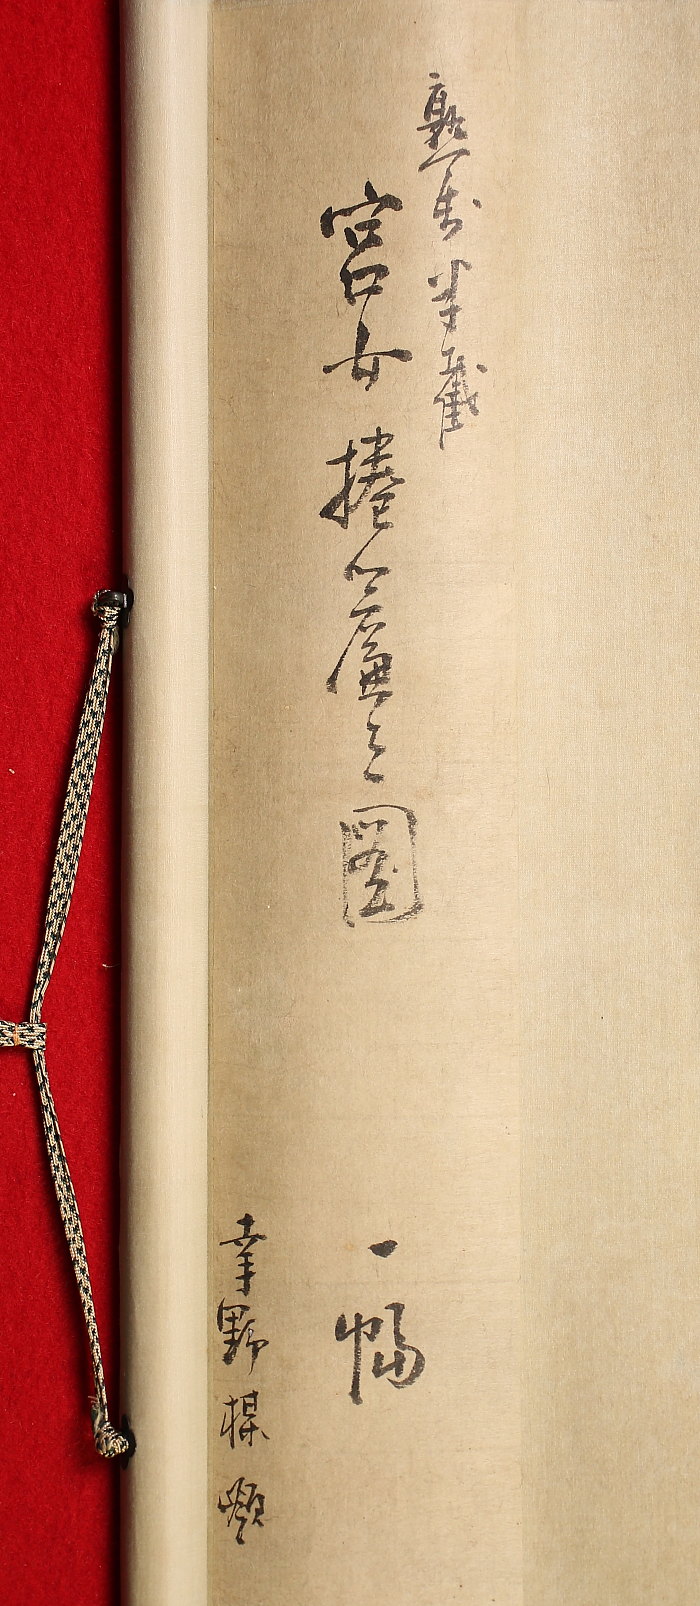 半截
宮女捲簾之圖 一幅
幸野楳嶺